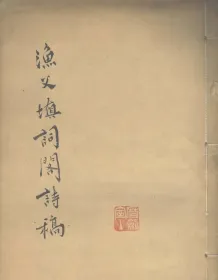 漁父填詞閣詩稿